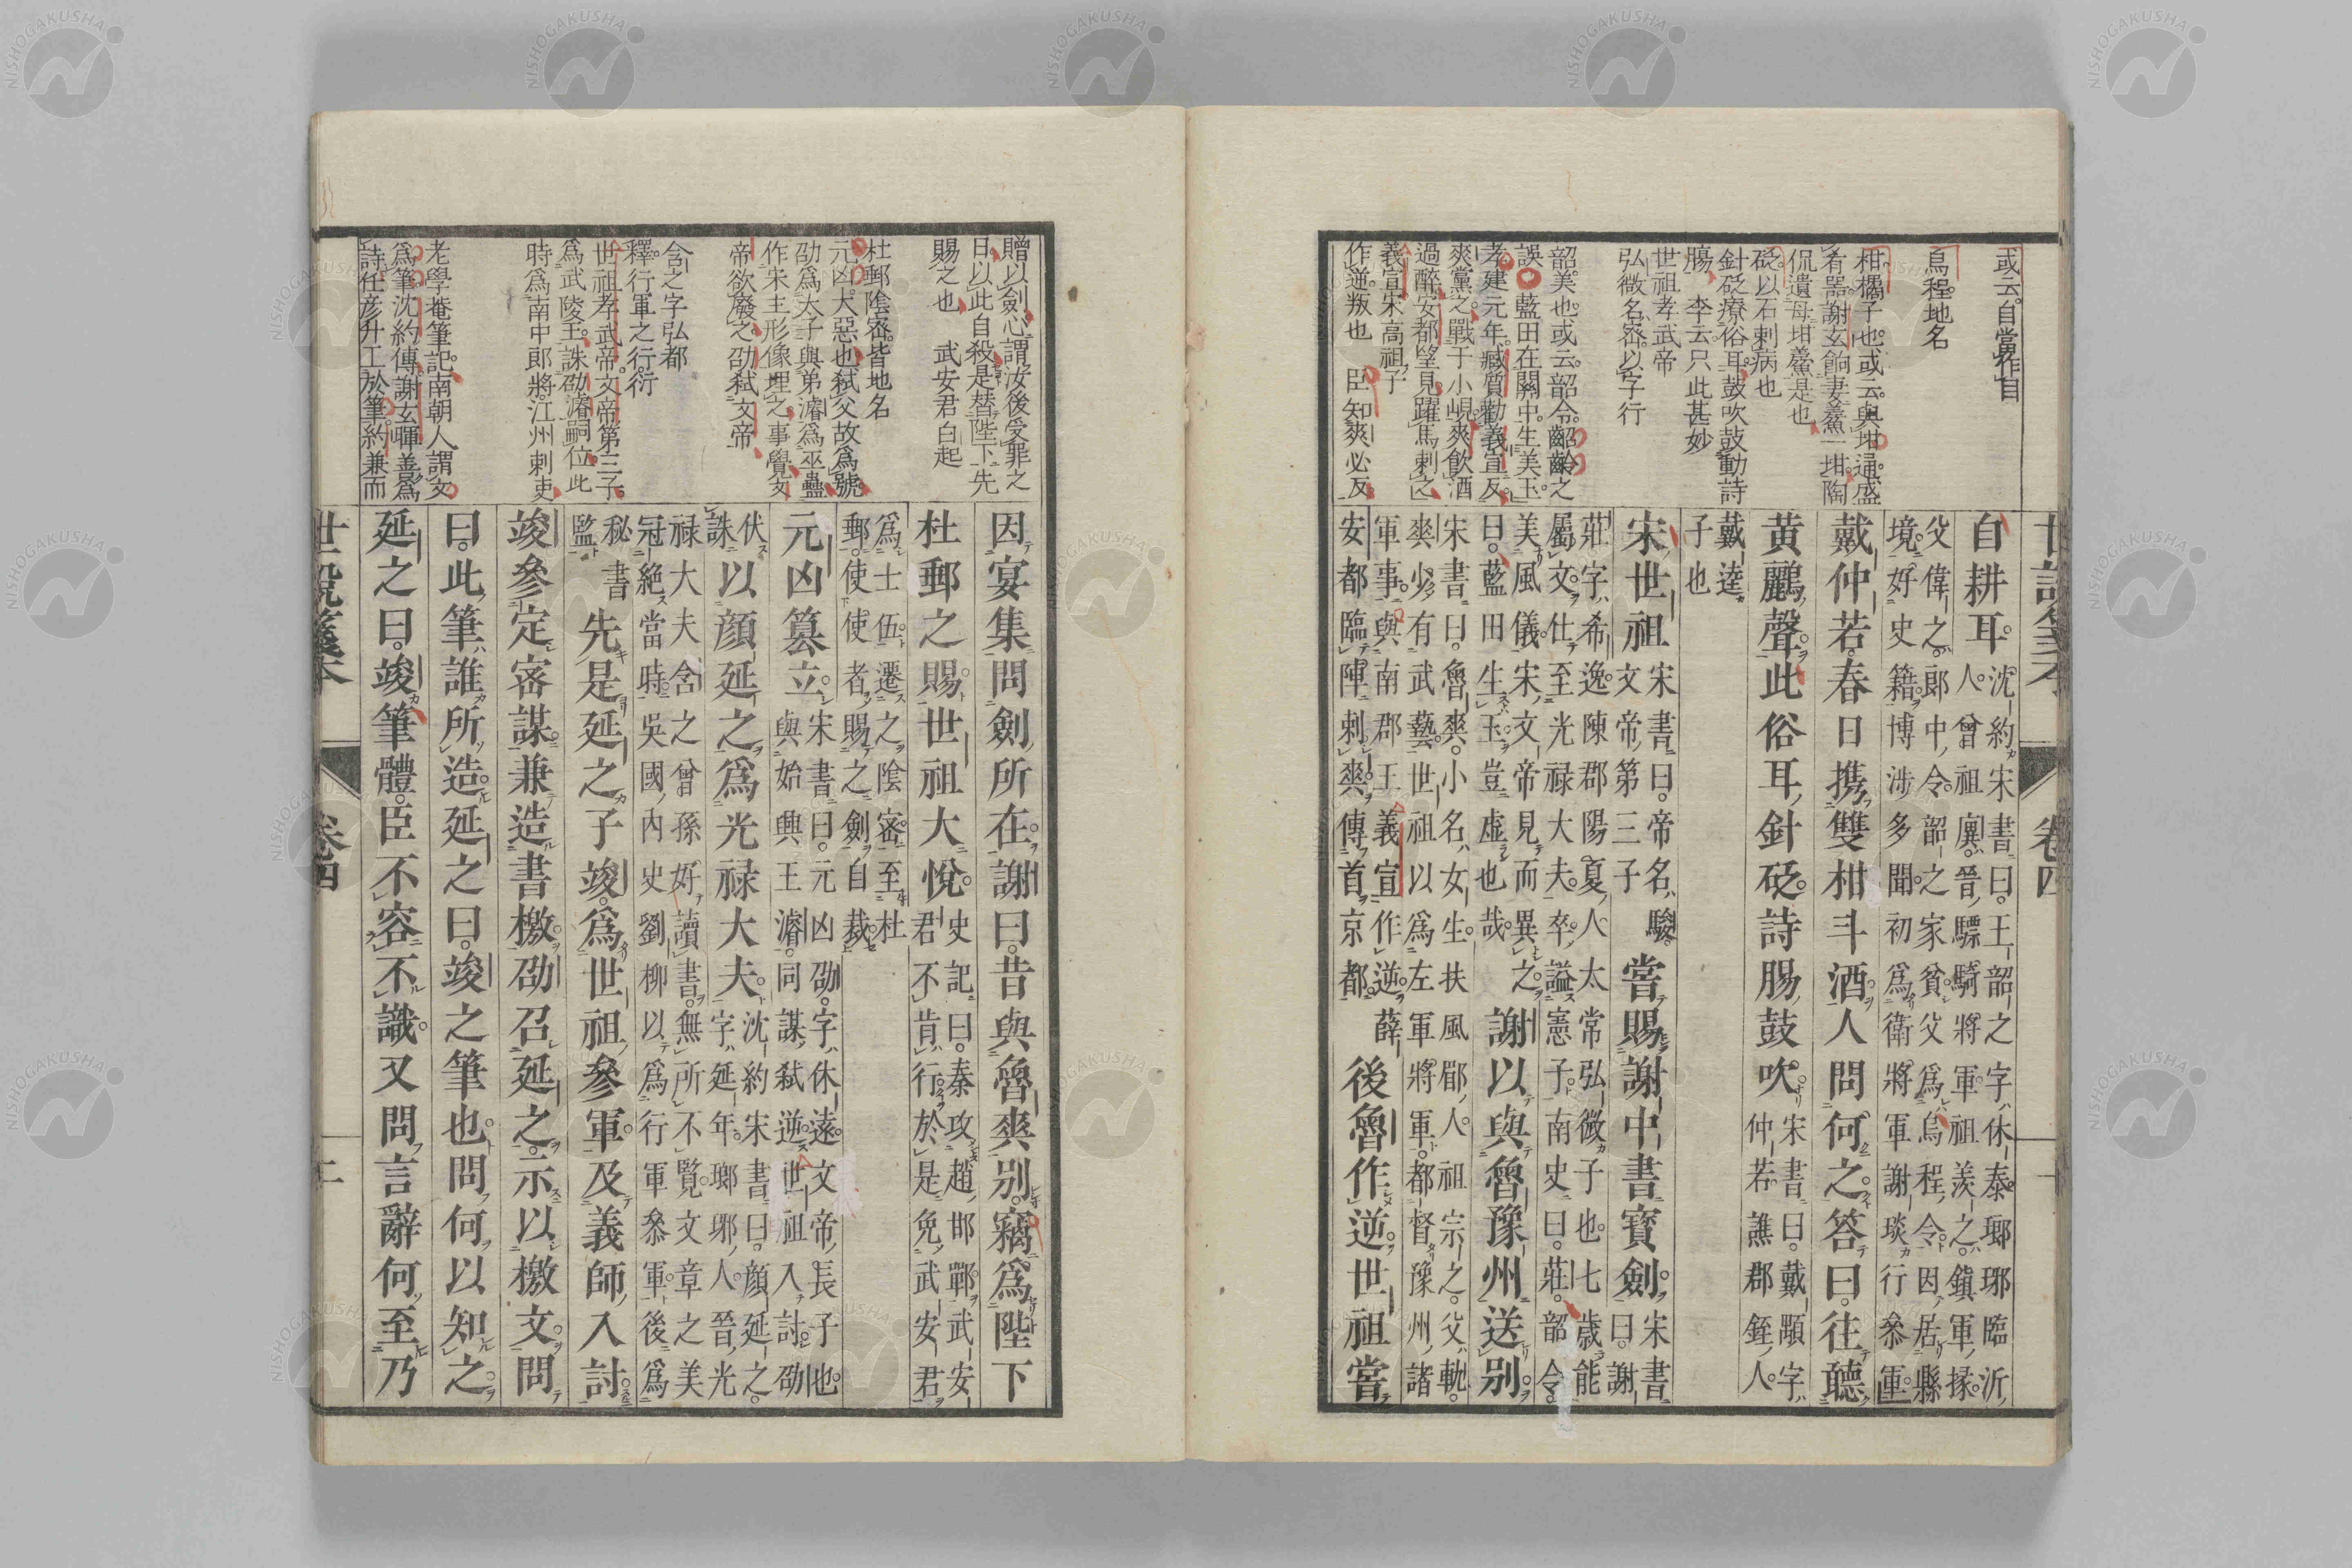 或云自當作目
烏程地名
柑橘子也或云與坩通盛
肴器謝玄餉妻鮝一坩陶
侃遺母坩鮝是也
砭以石刺病也
針砭療俗耳鼓吹鼓動詩
腸 李云只此甚妙
世祖孝武帝
弘微名密以字行
韶美也或云韶令韶齡之
誤 藍田在關中生美玉
孝建元年臧質勸義宣反
爽黨之戰于小峴爽飲酒
過醉安都望見躍馬刺之
義宣宋高祖子
作逆叛也 臣知爽必反
世說箋本 卷四 一
自耕耳沈約宋書曰王韶之字休泰瑯琊臨沂人曾祖廙晉驃騎將軍祖羨之鎮軍掾
父偉之郎中令韶之家貧父爲烏程令因居縣境好史籍博涉多聞初爲衛將軍謝琰行參軍
戴仲若春日携雙柑斗酒人問何之答曰往聽
黄鸝聲此俗耳針砭詩腸鼓吹宋書曰戴顒字仲若譙郡銍人
戴逵子也
宋世祖宋書曰帝名駿文帝第三子嘗賜謝中書寶劍宋書曰謝
莊字希逸陳郡陽夏人太常弘微子也七歲能屬文仕至光禄大夫卒謚憲子南史曰莊韶令
美風儀宋文帝見而異之曰藍田生玉豈虛也哉謝以與魯豫州送别
宋書曰魯爽小名女生扶風郿人祖宗之父軌爽少有武藝世祖以爲左軍將軍都督豫州諸
軍事與南郡王義宣作逆薛安都臨陣刺爽傳首京都後魯作逆世祖嘗
贈以劍心謂汝後受罪之
日以此自殺是替陛下先
賜之也 武安君白起
杜郵陰密皆地名
元凶大惡也弑父故爲號
劭爲太子與弟濬爲巫蠱
作宋主形像埋之事覺文
帝欲廢之劭弑文帝
含之字弘都
釋行軍之行衍
世祖孝武帝文帝第三子
爲武陵王誅劭濬嗣位此
時爲南中郎將江州刺吏
老學菴筆記南朝人謂文
爲筆沈約傳謝玄暉善爲
詩任彦升工於筆約兼而
因宴集問劍所在謝曰昔與魯爽别竊爲陛下
杜郵之賜世祖大悅史記曰秦攻趙邯鄲武安君不肯行於是免武安君
爲士伍遷之陰密至杜郵使使者賜之劍自裁
元凶簒立宋書曰元凶劭字休遠文帝長子也與始興王濬同謀弑逆世祖入討劭
伏誅以顔延之爲光禄大夫沈約宋書曰顔延之字延年瑯琊人晉光
禄大夫含之曾孫好讀書無所不覽文章之美冠絶當時吳國内史劉柳以爲行軍參軍後爲
秘書監先是延之子竣爲世祖參軍及義師入討
竣參定密謀兼造書檄劭召延之示以檄文問
曰此筆誰所造延之曰竣之筆也問何以知之
延之曰竣筆體臣不容不識又問言辭何至乃
世說箋本 卷四 二